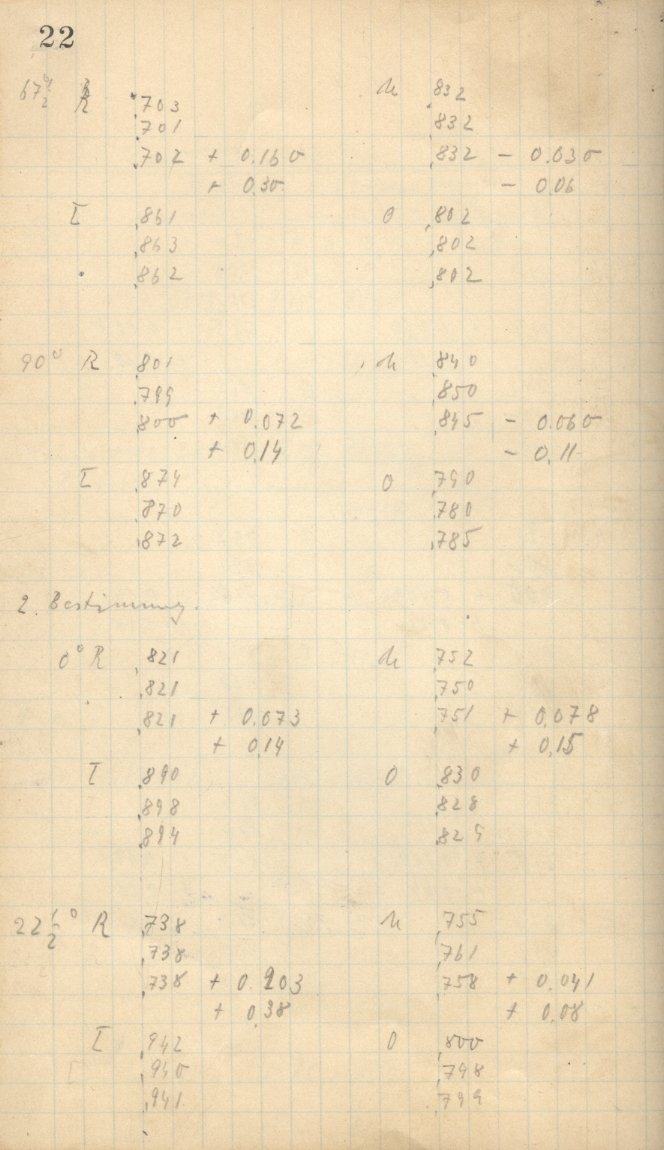 22
67½° R ,703 u ,832
,701 ,832
,702 + 0.160 ,832 - 0.030
+ 0,30 - 0,06
I ,861 O ,802
,863 ,802
,862 ,802
90° R ,801 u ,840
,799 ,850
,800 + 0.072 ,845 - 0.060
+ 0,14 - 0,11
I ,874 O ,790
,870 ,780
,872 ,785
2. Bestimmung.
0° R ,821 u ,752
,821 ,750
,821 + 0.073 ,751 + 0,078
+ 0,14 + 0,15
I ,890 O ,830
,898 ,828
,894 ,829
22½° R ,738 u ,755
,738 ,761
,738 + 0.203 ,758 + 0.041
+ 0,38 + 0,08
I ,942 O ,800
,940 ,798
,941 ,799